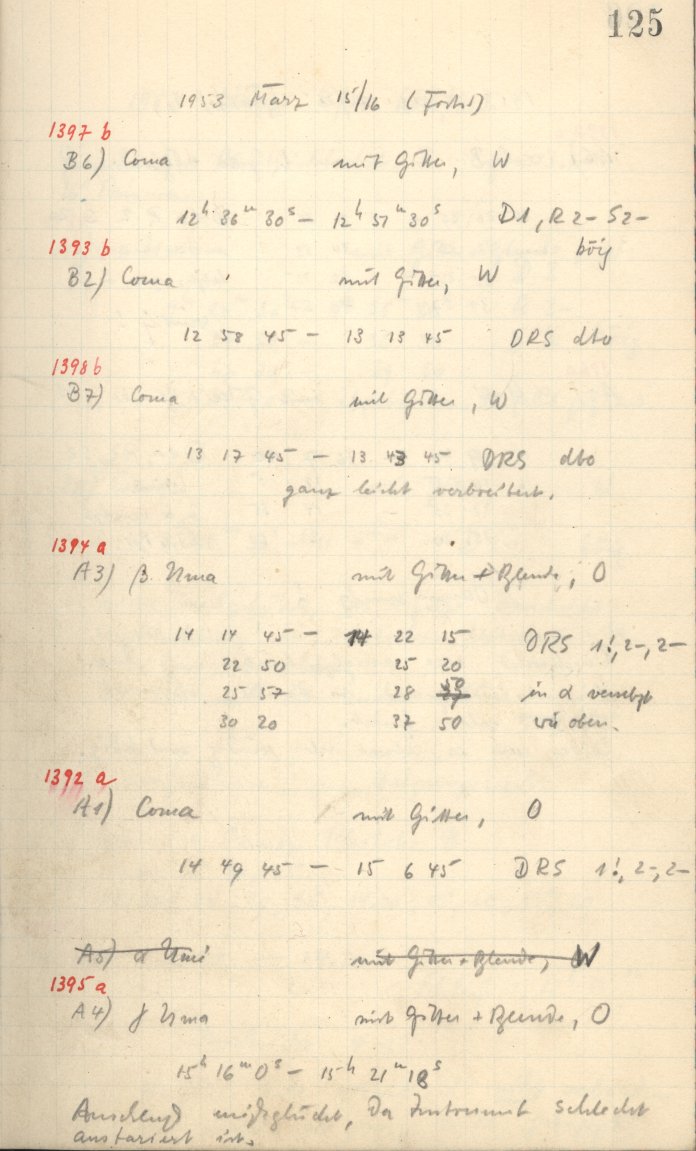 125
1953 März 15/16 (Forts.)
1397 b
B6) Coma mit Gitter, W
12h 36m 30s – 12h 51m 30s D1, R2– S2–
böig
1393 b
B2) Coma mit Gitter, W
12 58 45 – 13 13 45 DRS dto
1398 b
B7) Coma mit Gitter, W
13 17 45 – 13 43 45 DRS dto
ganz leicht verbreitert.
1394 a
A3) β Uma mit Gitter + Blende, O
14 14 45 – 14 22 15 DRS 1!, 2–, 2–
22 50 25 20
25 57 28 50 in α versetzt
30 20 37 50 wie oben.
1392 a
A1) Coma mit Gitter, O
14 49 45 – 15 6 45 DRS 1!, 2–, 2–
A5) α Umi mit Gitter + Blende, W
1395 a
A4) γ Uma mit Gitter + Blende, O
15h 16m 0s – 15h 21m 18s
Anschluß mißglückt, da Instrument schlecht
austariert ist.